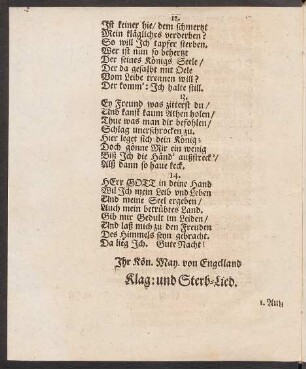 12.
Ist keiner hie / dem schmertzt
Mein klägliches verderben?
So will Ich tapfer sterben.
Wer ist nun so behertzt
Der seines Königs Seele /
Der da gesalbt mit Oele
Vom Leibe trennen will?
Der komm': Ich halte still.
13.
Ey Freund was zitterst du /
Und kanst kaum Athen holen /
Thue was man dir befohlen /
Schlag unerschrocken zu.
Hier leget sich dein König:
Doch gönne Mir ein wenig
Biß Ich die Händ' außstreck' /
Alß dann so haue keck.
14.
HErr GOTT in deine Hand
Wil Ich mein Leib vnd Leben
Und meine Seel ergeben /
Auch mein betrübtes Land.
Gib mir Gedult im Leiden /
Und laß mich zu den Freuden
Des Himmels seyn gebracht.
Da lieg Ich. Gute Nacht!
Ihr Kön. May. von Engelland
Klag: und Sterb-Lied.
1. Auh